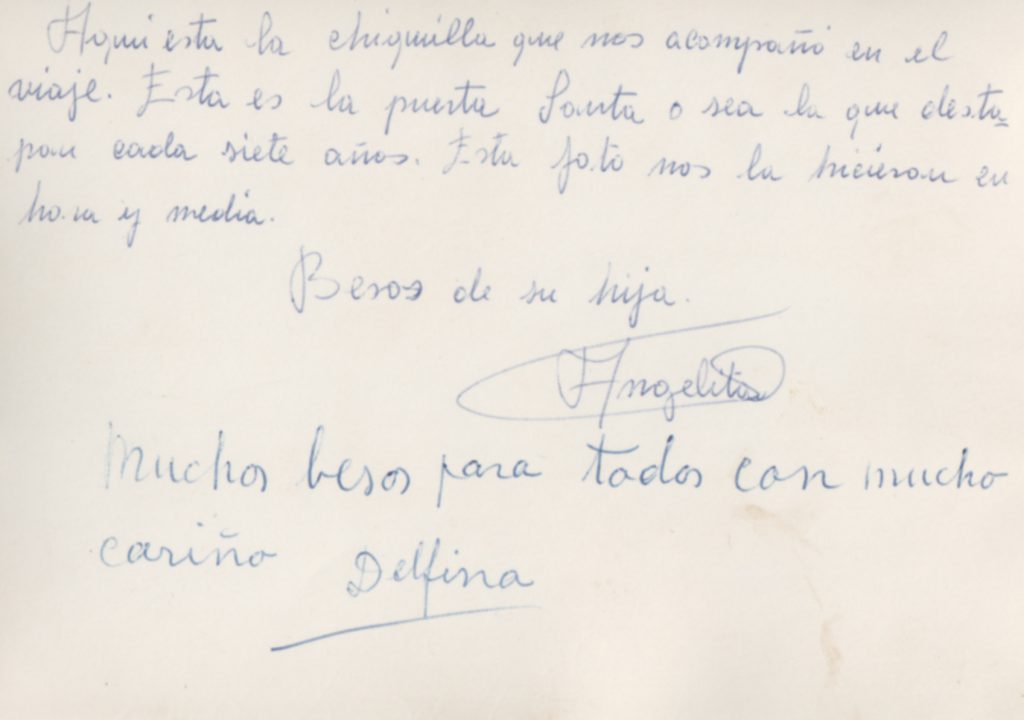 Aqui esta la chiquilla que nos acompañó en el
viaje. Esta es la puerta Santa o sea la que desta-
pan cada siete años. Esta foto nos la hicieron en
hora y media.
Besos de su hija.
Angelita
Muchos besos para todos con mucho
cariño Delfina